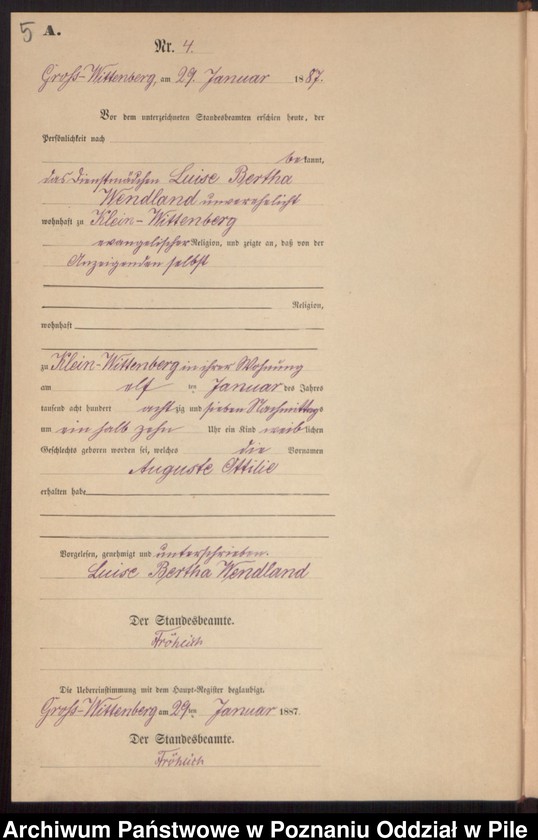 5 A.
Nr. 4.
Groß-Wittenberg, am 29. Januar 1887.
Vor dem unterzeichneten Standesbeamten erschien heute, der
Persönlichkeit nach
bekannt,
das Dienstmädchen Luise Bertha
Wendland unverehelicht
wohnhaft zu Klein-Wittenberg
evangelischer Religion, und zeigte an, daß von der
Anzeigenden selbst
Religion,
wohnhaft
zu Klein-Wittenberg in ihrer Wohnung
am elf ten Januar des Jahres
tausend acht hundert achtzig und sieben Nachmittags
um ein halb zehn Uhr ein Kind weiblichen
Geschlechts geboren worden sei, welches die Vornamen
Auguste Ottilie
erhalten habe
Vorgelesen, genehmigt und unterschrieben.
Luise Bertha Wendland
Der Standesbeamte.
Fröhlich
Die Uebereinstimmung mit dem Haupt-Register beglaubigt.
Groß-Wittenberg am 29ten Januar 1887.
Der Standesbeamte.
Fröhlich
Archiwum Państwowe w Poznaniu Oddział w Pile